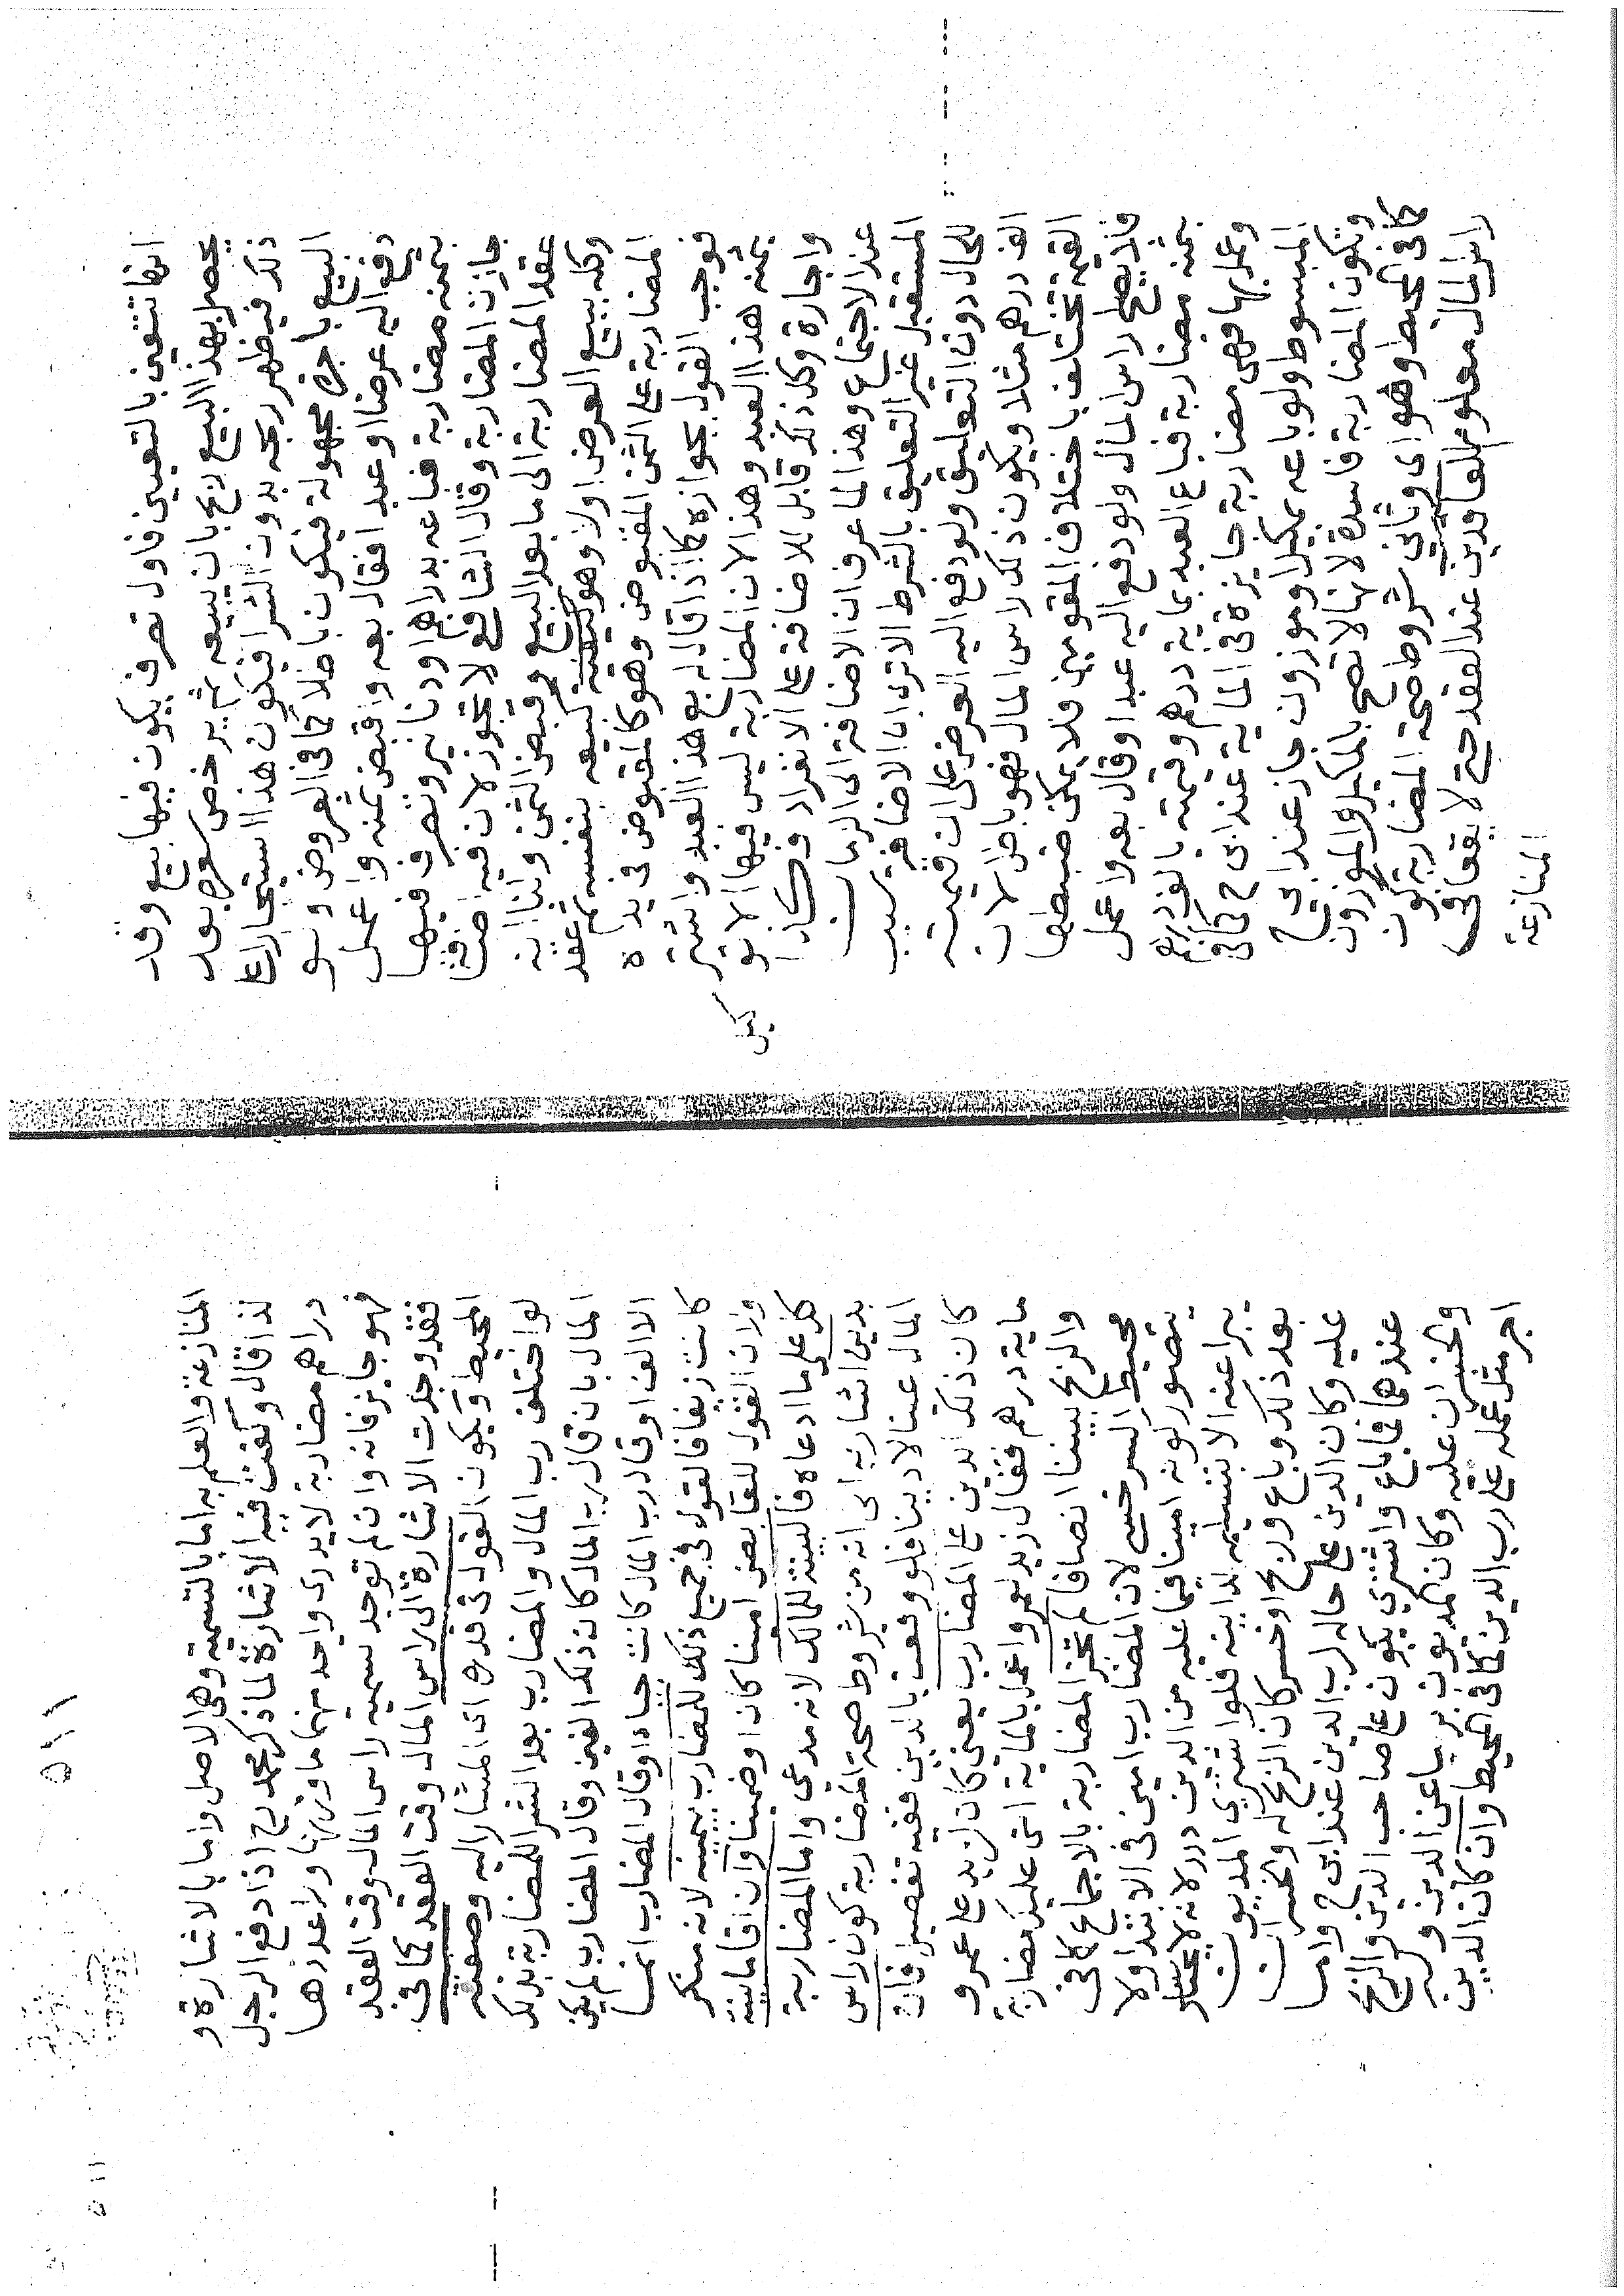 انها تتعين بالتعيين فاول تصرف يكون فيها بيع وقد
يحصل بهذا البيع ربح بان يبيعه ثم يرخص سعره بعد
ذلك فيظهر ربحه بدون الشرا فيكون هذا استيجارا على
البيع باجرة مجهولة فيكون باطلا كما في العروض ولو
دفع اليه عرضا او عبدا فقال بعه واقبض ثمنه واعمل
بثمنه مضاربة فباعه بدراهم او دنانير وتصرف فيها
جازت المضاربة وقال الشافعي لا تجوز لان فيه اضافة
عقد المضاربة الى ما بعد البيع وقبض الثمن ولنا انه
وكله ببيع العرض اولا وهو كبيعه بنفسه ثم عقد
المضاربة على الثمن المقبوض وهو كالمقبوض في يده
فوجب القول بجوازه كما اذا قال له بع هذا العبد واشتر
بثمنه هذا العبد وهذا لان المضاربة ليس فيها الا تو
كيل
واجارة وكل ذلك قابل للاضافة على الانفراد فكذا
عند الاجتماع وهذا لما عرف ان الاضافة الى الزمان
المستقبل غير التعليق بالشرط الا ترى ان الاضافة سبب
للحال دون التعليق ولو دفع اليه العرض على ان قيمته
الف درهم مثلا ويكون ذلك راس المال فهو باطل لان
القيمة تختلف باختلاف المقومين فلا يمكن ضبطها
فلا يصلح راس المال ولو دفع اليه عبدا وقال بعه واعمل
بثمنه مضاربة فباع العبد بماية درهم وقيمته الف درهم
وعمل بها فهي مضاربة جايزة في الماية عند ابي ح كما في
المبسوط ولو باعه بمكيل او موزون جاز عند ابي ح
وتكون المضاربة فاسدة لانها لا تصح بالمكيل والموزون
كما في المحيط وهو اي وثاني شروط صحة المضاربة كون
راس المال معلوم للعاقدين عند العقد حتى لا يقعا في
المنازعة
٥١١
المنازعة والعلم به اما بالتسمية وهي الاصل واما بالاشارة و
لذا قال وكفت فيه الاشارة لما ذكر محمد رح اذا دفع الرجل
دراهم مضاربة لا يدري واحد منهما وزنها ولا عددها
فهو جايز فانه وان لم توجد تسمية راس المال وقت العقد
فقد وجدت الاشارة الى راس المال وقت العقد كما في
المحيط ويكون القول في قدره اي المشار اليه وصفته
لو اختلف رب المال والمضارب بعد الشرا للمضاربة بذلك
المال بان قال رب المال كان ذلك الفين وقال المضارب لم يكن
الا الف او قال رب المال كانت جيادا وقال المضارب انها
كانت زيفا فالقول في جميع ذلك للمضارب بيمينه لانه منكر
ولان القول للقابض امينا كان او ضمينا وان اقاما بينة
كل على ما ادعاه فالبينة للمالك لانه مدعي واما المضاربة
بدين اشار به الى انه من شروط صحة المضاربة كون راس
المال عينا لا دينا فلو وقعت بالدين ففيه تفصيل فان
كان ذلك الدين على المضارب يعني كان لزيد على عمرو
ماية درهم فقال زيد لعمرو اعمل بالماية التي عليك مضاربة
والربح بيننا انصافا لم تجز المضاربة بالاجماع كما في
محيط السرخسي لان المضارب امين في الابتدا ولا
يتصور كونه امينا فيما عليه من الدين درر لانه لا
يبرا عنه الا بتسليمه لداينه فلو اشترى المديون
بعد ذلك وباع وربح او خسر كان الربح له والخسران
عليه وكان الدين على حاله لرب الدين عند ابي ح واما
عندهما فما باع واشترى يكون على صاحب الدين والربح له
والخسران عليه وكان المديون بريا عن الدين وله
اجر مثل عمله على رب الدين كما في المحيط وان كان الدين